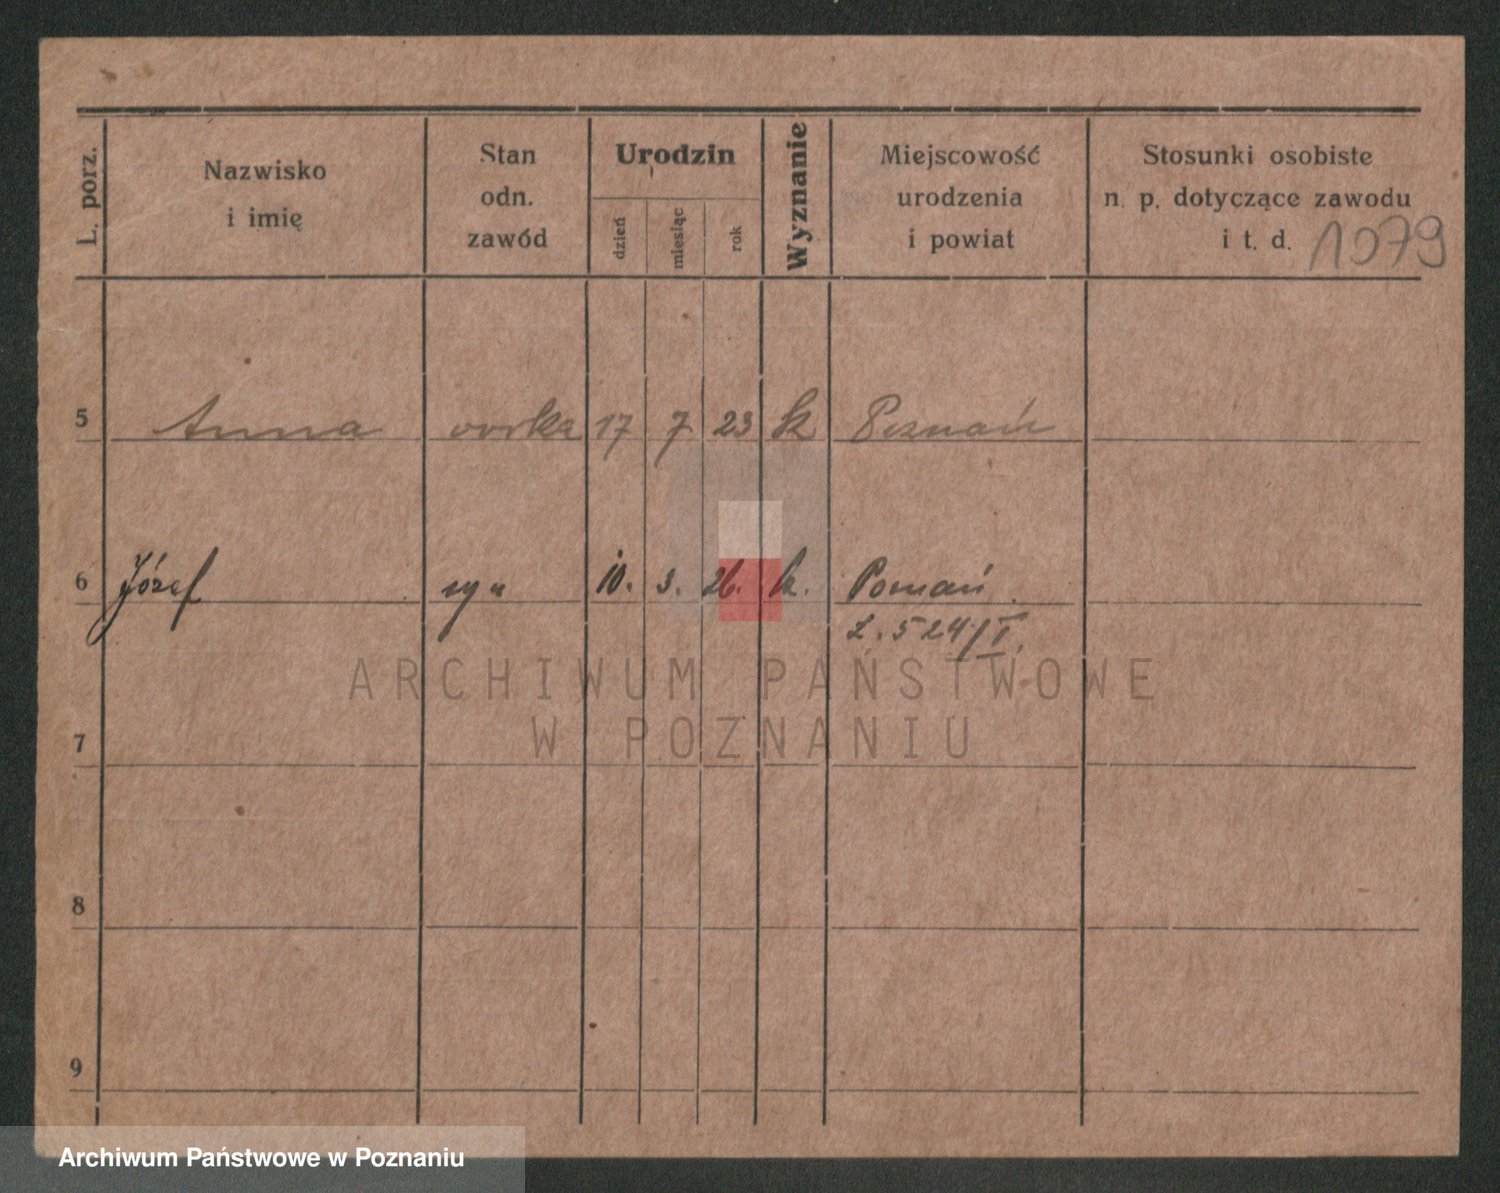 L. porz.
Nazwisko
i imię
Stan
odn.
zawód
Urodzin
dzień
miesiąc
rok
Wyznanie
Miejscowość
urodzenia
i powiat
Stosunki osobiste
n. p. dotyczące zawodu
i t. d.
1079
5 Anna 17 7 23 k Poznań
6 Józef syn 10. 3. 26. k. Poznań
L. 524/I
ARCHIWUM PAŃSTWOWE
W POZNANIU
7
8
9
Archiwum Państwowe w Poznaniu